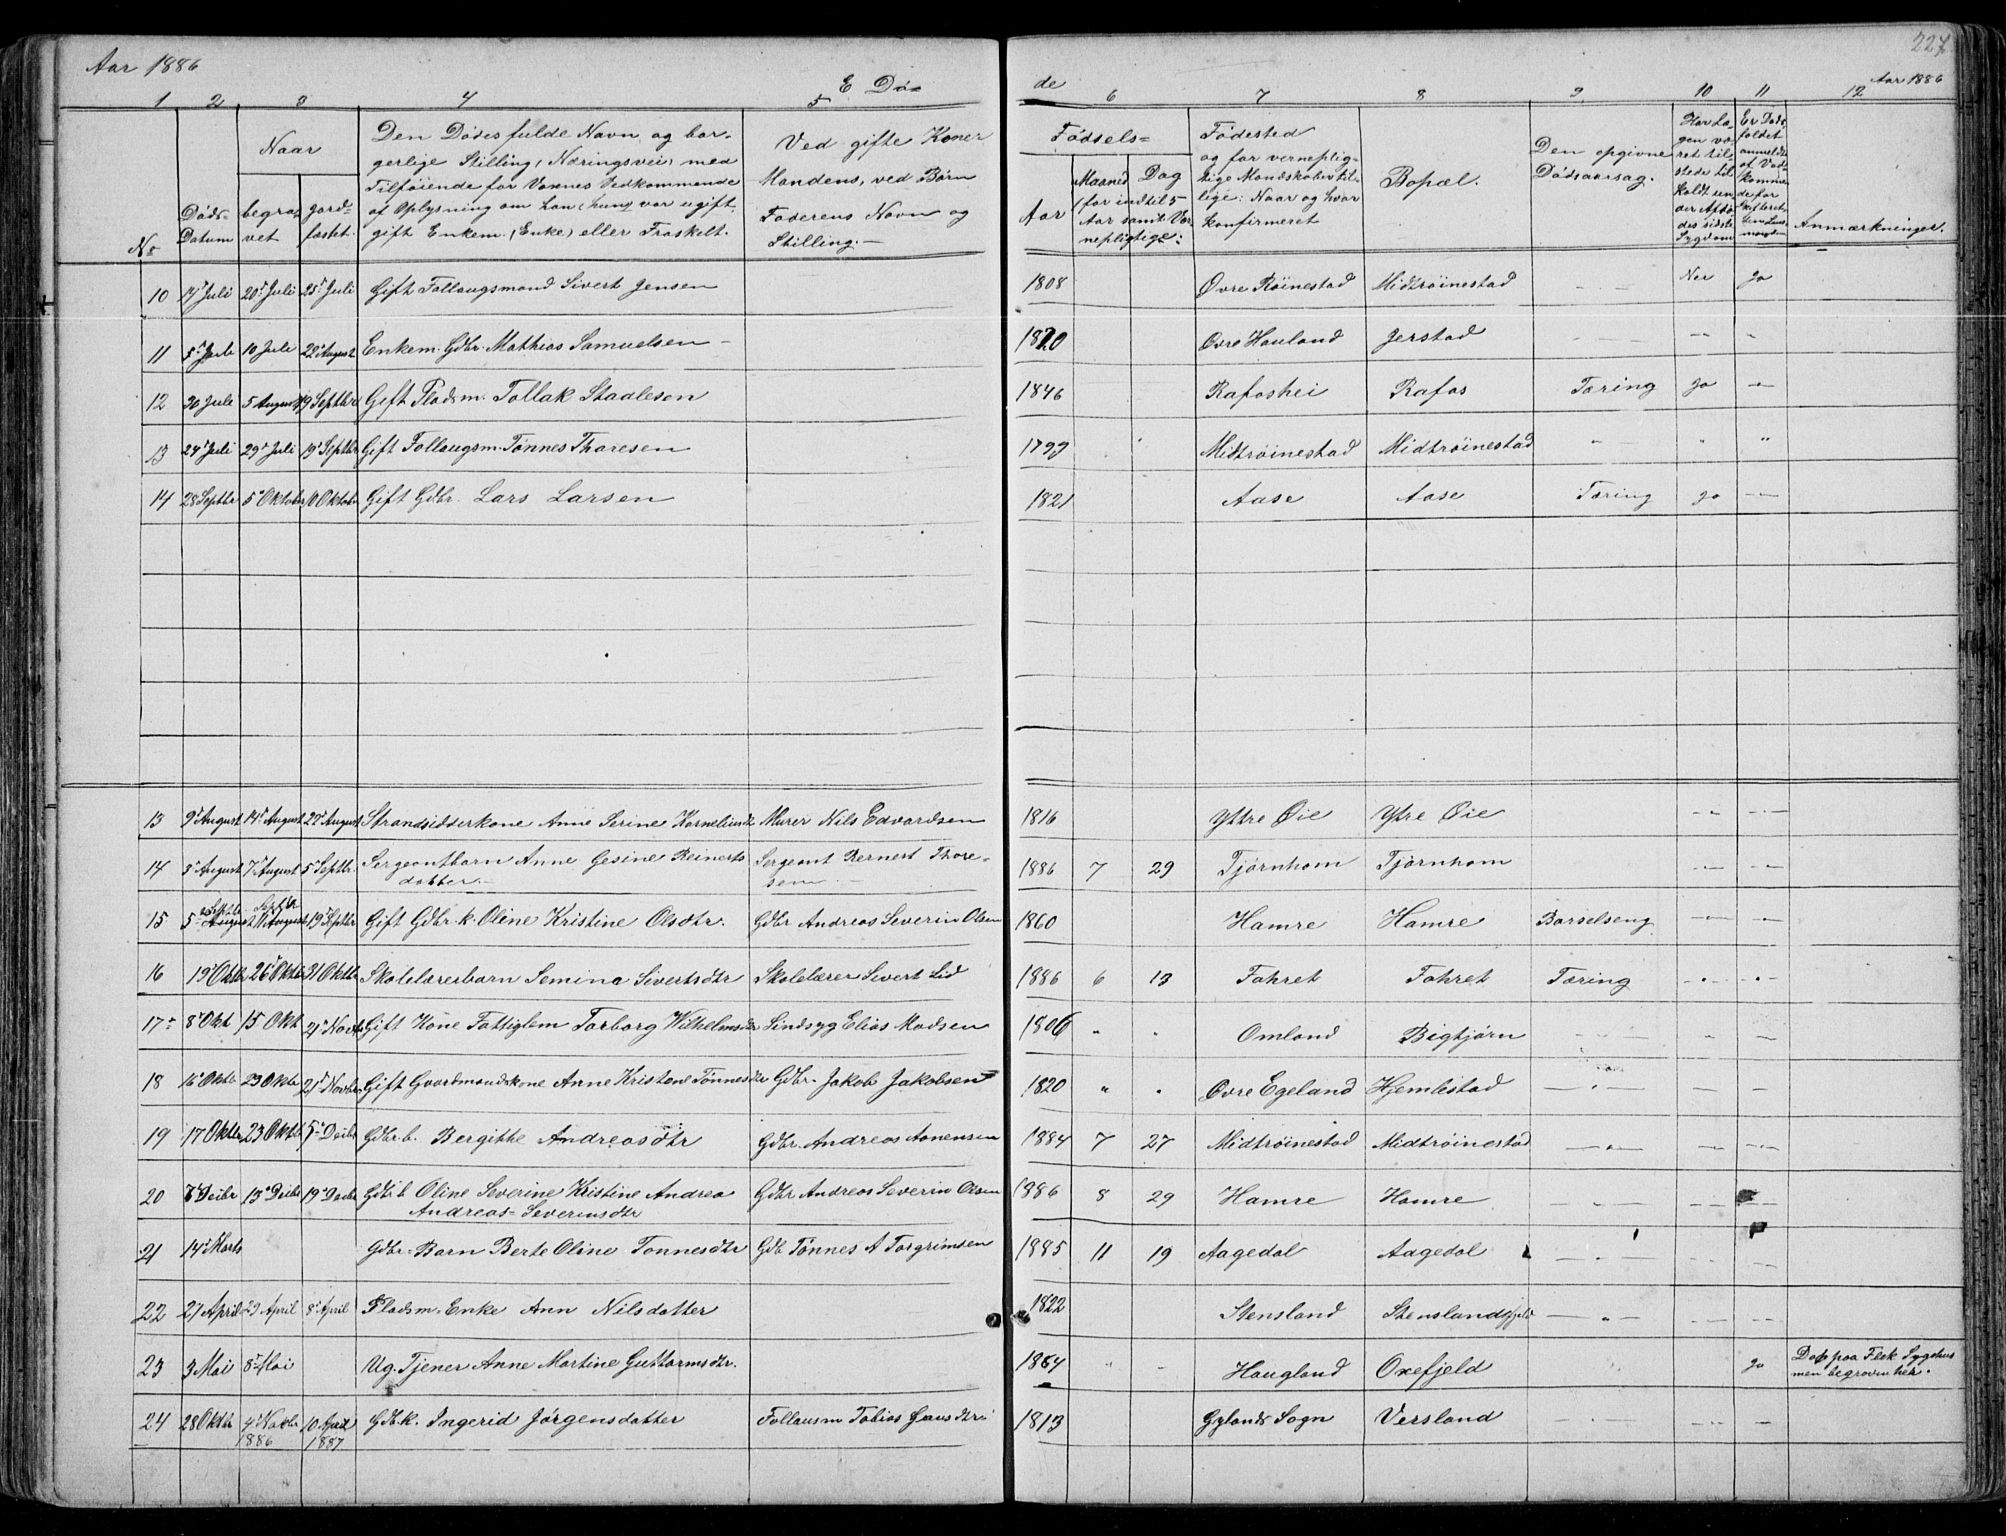 Aar 1886
E Dø=
de
227
Aar 1886
1 2 3 4 5 6 7 8 9 10 11 12
No
Døds-
Datum
Naar
begra-
vet
jord-
fæstet.
Den Dødes fulde Navn og bor-
gerlige Stilling (Næringsvei) med
Tilføiende for Voxnes Vedkommende
af Oplysning om han (hun) var ugift,
gift Enkem. (Enke) eller Fraskelt.
Ved gifte Koner
Mandens, ved Børn
Faderens Navn og
Stilling.
Fødsels=
Aar
Maaned Dag
(for indtil 5
Aar samt Ver-
nepligtige:
Fødested
og for verneplig-
tige Mandskaber til-
lige: Naar og hvor
konfirmeret
Bopæl.
Den opgivne
Dødsaarsag.
Har Læ-
gen væ-
ret til-
stede til
Anmærkninger.
10 14 Juli 20 Juli 25 Juli Gift Follaugsmand Sivert Jensen 1808 Øvre Røinestad Midtrøinestad - - Nei Ja
11 5 Juli 10 Juli 22 August Enkem. Gdbr. Mathias Samuelsen 1820 Øvre Hauland Jerstad
12 30 Juli 5 August 19 Septbr Gift Pladsm. Tollak Staalesen 1846 Rafoshei Rafos Tæring Ja
13 24 Juli 29 Juli 19 Septbr Gift Follaugsm. Tønnes Thoresen 1799 Midtrøinestad Midtrøinestad " " "
14 28 Septbr 5 Oktober 10 Oktober Gift Gdbr. Lars Larsen 1821 Aase Aase Tæring Ja
13 9 August 14 August 22 August Strandsidderkone Anne Serine Kornelius Murer Nils Edvardsen 1816 Yttre Øie Ytre Øie
14 3 August 7 August 5 Septbr. Sergeantbarn Anne Gesine Reinerts Sergeant Rernert Thore- 1886 7 29 Tjørnhom Tjørnhom
datter. sen
15 5 August Septbr 19 Septbr Gift Gdbr. k. Oline Kristine Olsdtr. Gdbr Andreas Severin Olsen 1860 Hamre Hamre Barselseng
16 19 Oktbr 26 Oktbr 31 Oktbr Skolelærerbarn Semina Sivertsdtr Skolelærer Sivert Lid 1886 6 13 Fahret Fahret Tæring
17 8 Okt 15 Okt 21 Novbr Gift Kone Fattiglem Torborg Wilhelmsdtr Sindsyg Elias Madsen 1806 " " Omland Bigtjørn
18 16 Oktbr 23 Oktbr 21 Novbr Gift Gaardmandskone Anne Kristane Tønnesdtr Gdbr. Jakob Jakobsen 1820 " " Øvre Egeland Hjemlestad
19 17 Oktbr 23 Oktbr 5 Decbr Gdbr. b. Bergitte Andreasdtr Gdbr. Andreas Aanensen 1884 7 27 Midtrøinestad Midtrøinestad
20 8 Decbr 13 Decbr 19 Decbr Gdbr b Oline Severine Kristine Andrea Gdbr Andreas Severin Olsen 1886 8 29 Hamre Hamre
Andreas-Severinsdtr
21 14 Marts Gdbr. Barn Berte Oline Tonnesdtr Gdb Tønnes A Torgrimsen 1885 11 19 Aagedal Aagedal
22 27 April 29 April 8 April Pladsm. Enke Ann Nilsdatter 1822 Stensland Stenslandsfjeld
23 3 Mai 8 Mai Ug. Tjener Anne Martine Guttormsdtr. 1864 " " Haugland Oxefjeld Ja Død paa Flek. Sygehus
men begraven her.
24 28 Oktbr 4 Novbr 10 April Gdb. k. Ingerid Jørgensdatter Follausm Tobias 1813 Gylands Sogn Versland
1886 1887